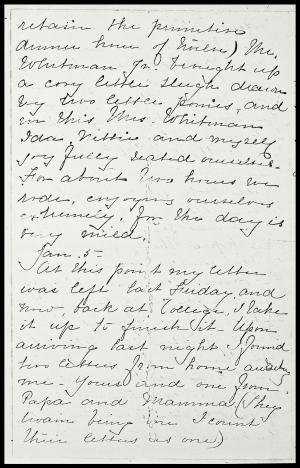 retain the primitive
dinner hour of twelve) Mr.
Whitman Jr. brought up
a cosy little sleigh drawn
by two little ponies, and
in this Mrs. Whitman
Ida Kittie and myself
joyfully seated ourselves.
For about two hours we
rode, enjoying ourselves
extremely, for the day is
very mild.
Jan. 5-
At this point my letter
was left last Friday and
now, back at College, I take
it up to finish it. Upon
arriving last night I found
two letters from home awaiting
me - yours and one from
Papa and Mamma (They
twain being one I count
their letters as one)